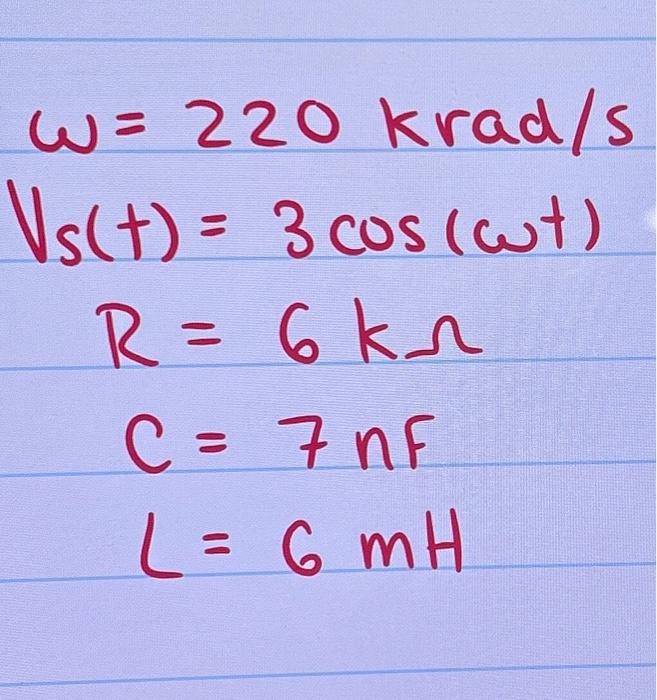 ω = 220 krad/s
Vs(t) = 3 cos(ωt)
R = 6 kΩ
C = 7 nF
L = 6 mH